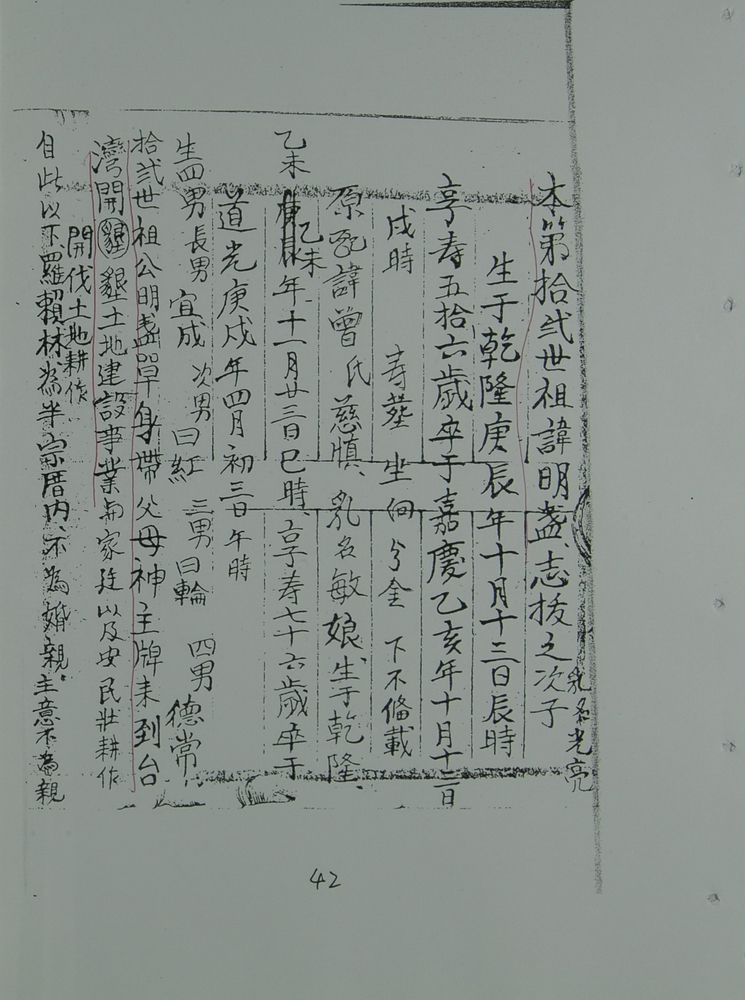 本第拾弍世祖諱明盞、志拔之次子
乳名光亮
生于乾隆庚辰年十月十三日辰時
享寿五拾六歲卒于嘉慶乙亥年十月十三日
戌時 寿塋 坐 向 兮金 下不俻載
原配諱曾氏慈慎、乳名敏娘、生于乾隆、
乙未
乙未
庚辰年十一月廿三日巳時、享寿七十六歲卒于
道光庚戌年四月初三日午時
生四男長男宜成 次男曰紅 三男曰輪 四男德常
拾弍世祖公明盞單身帶父母神主牌来到台
灣開墾墾土地建設事業与家廷以及安民壯耕作
開伐土地耕作
自此以下、羅賴林、為半宗厝内、不為婚親。主意不為親
42